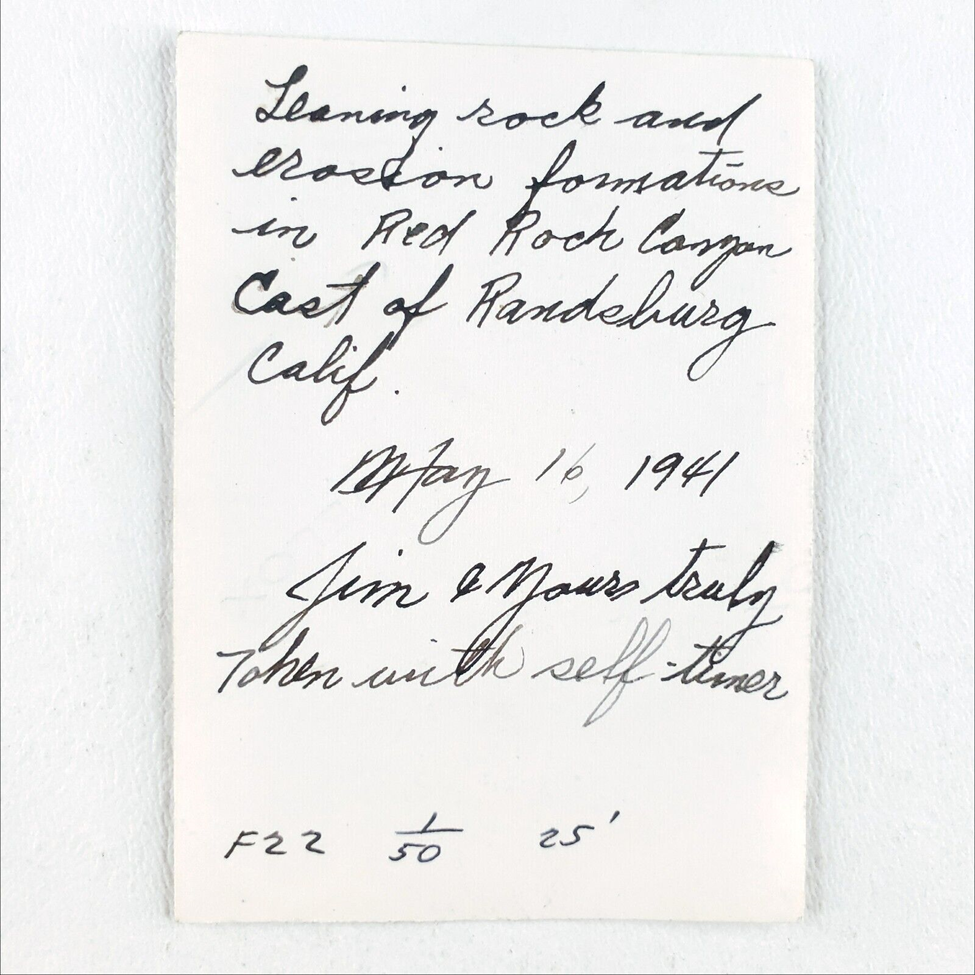 Leaning rock and
erosion formations
in Red Rock Canyon
East of Randsburg
Calif.
May 16, 1941
Jim & Yours truly
Taken with self-timer
F22 1/50 25'